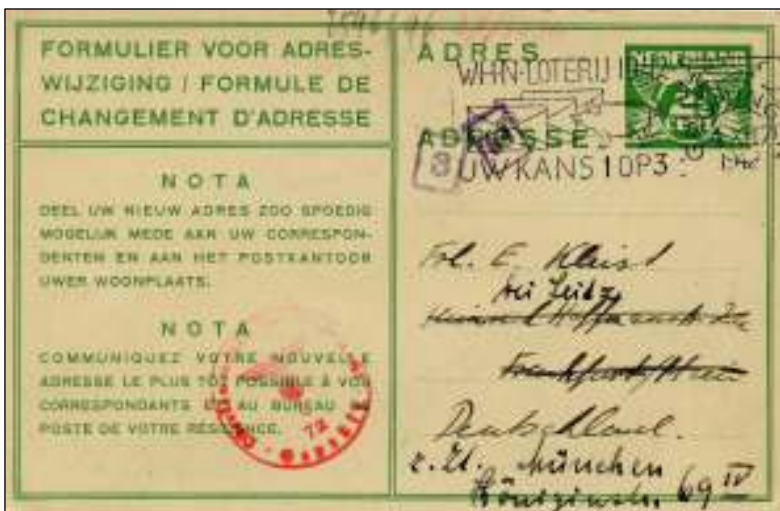 FORMULIER VOOR ADRES-
WIJZIGING / FORMULE DE
CHANGEMENT D'ADRESSE
NOTA
DEEL UW NIEUW ADRES ZOO SPOEDIG
MOGELIJK MEDE AAN UW CORRESPON-
DENTEN EN AAN HET POSTKANTOOR
UWER WOONPLAATS.
NOTA
COMMUNIQUEZ VOTRE NOUVELLE
ADRESSE LE PLUS TÔT POSSIBLE À VOS
CORRESPONDANTS ET AU BUREAU DE
POSTE DE VOTRE RÉSIDENCE.
72
ADRES
NEDERLAND
WHN-LOTERIJ
ADRESSE
3
UW KANS 1 OP 3
Frl. E. Kleist
bei Seitz
Frankfurt/Main
Deutschland.
z. Zt. München
Königinstr. 69 IV